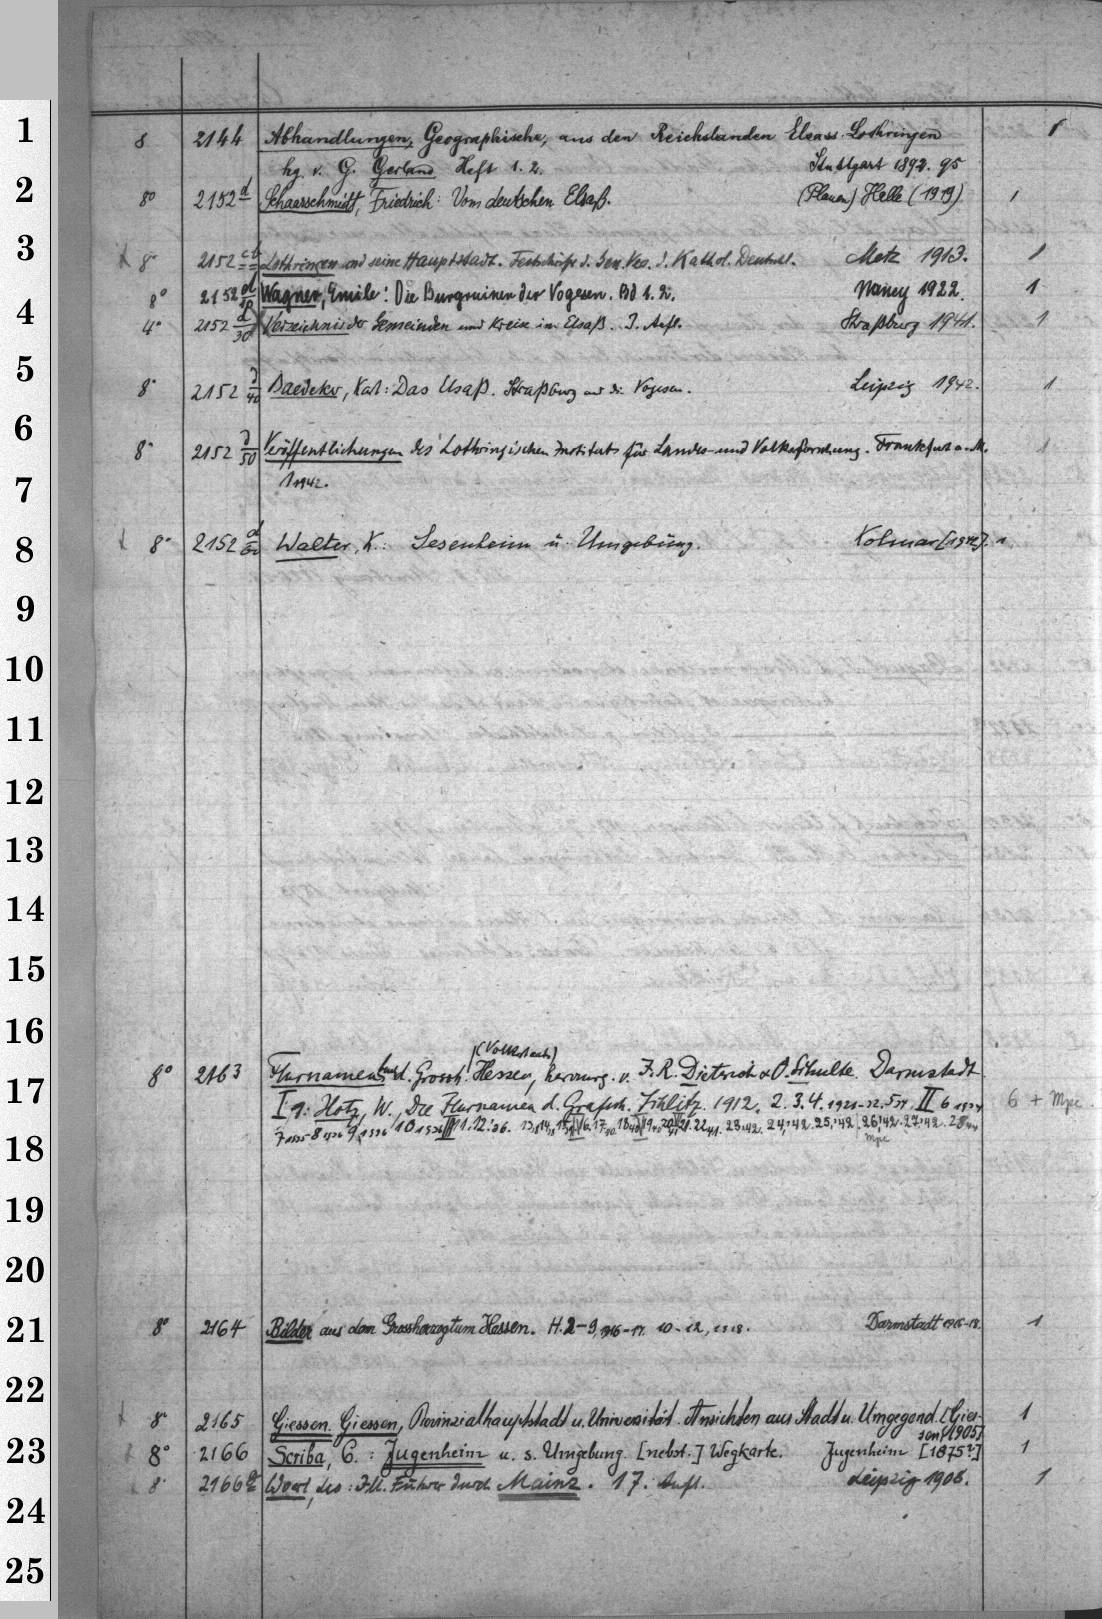 1
8 2144 Abhandlungen, Geographische, aus den Reichslanden Elsass-Lothringen 1
hg. v. G. Gerland Heft 1. 2. Stuttgart 1892. 95
2
8° 2152 d Schaarschmidt, Friedrich: Vom deutschen Elsaß. (Plauen) Helle (1919) 1
3
8° 2152 Lothringen und seine Hauptstadt. Festschrift d. Gen. Ves. d. Kathol. Deutschl. Metz 1913. 1
8° 2152 d/20 Wagner, Emile: Die Burgruinen der Vogesen. Bd 1. 2. Nancy 1922. 1
4
4° 2152 d/30 Verzeichnis der Gemeinden und Kreise im Elsaß. 3. Aufl. Straßburg 1941. 1
5
8° 2152 d/40 Baedeker, Karl: Das Elsaß. Straßburg und die Vogesen. Leipzig 1942. 1
6
8° 2152 d/50 Veröffentlichungen des Lothringischen Instituts für Landes- und Volksforschung. Frankfurt a. M. 1
7
1 1942.
8
8° 2152 d/60 Walter, K.: Sesenheim u. Umgebung. Kolmar [1942]. 1
9
10
11
12
13
14
15
16
(Volksstaats)
17
8° 2163 Flurnamenbuch d. Grossh. Hessen, herausg. v. F. R. Dieterich & O. Schulte. Darmstadt
I 1: Hotz, W., Die Flurnamen d. Grafsch. Schlitz. 1912. 2. 3. 4. 1921-32. 5 34, II 6 1934 6 + Mpe.
7 1935 8 1936 9, 1936 10 1936 III 11. 12. 36. 23,42. 24,42. 25,42. 26,42. 27,42. 28
Mpe
18
19
20
21
8° 2164 Bilder aus dem Grossherzogtum Hessen. H. 2-9, 1916-17. 10-12, 1918. Darmstadt 1916-18. 1
22
8° 2165 Giessen. Giessen, Provinzialhauptstadt u. Universität. Ansichten aus Stadt u. Umgegend. [Gies- 1
sen 1905]
23
8° 2166 Scriba, C.: Jugenheim u. s. Umgebung. [nebst.] Wegkarte. Jugenheim [1875?] 1
8° 2166 a Woerl, Leo: Ill. Führer durch Mainz. 17. Aufl. Leipzig 1906. 1
24
25